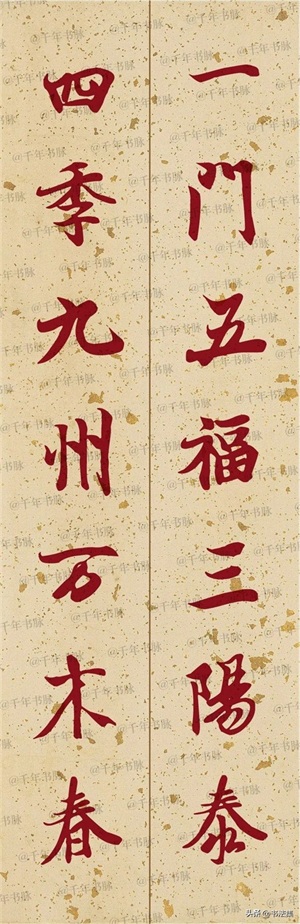 一門五福三陽泰
四季九州万木春
@千年书脉
头条@书法迷